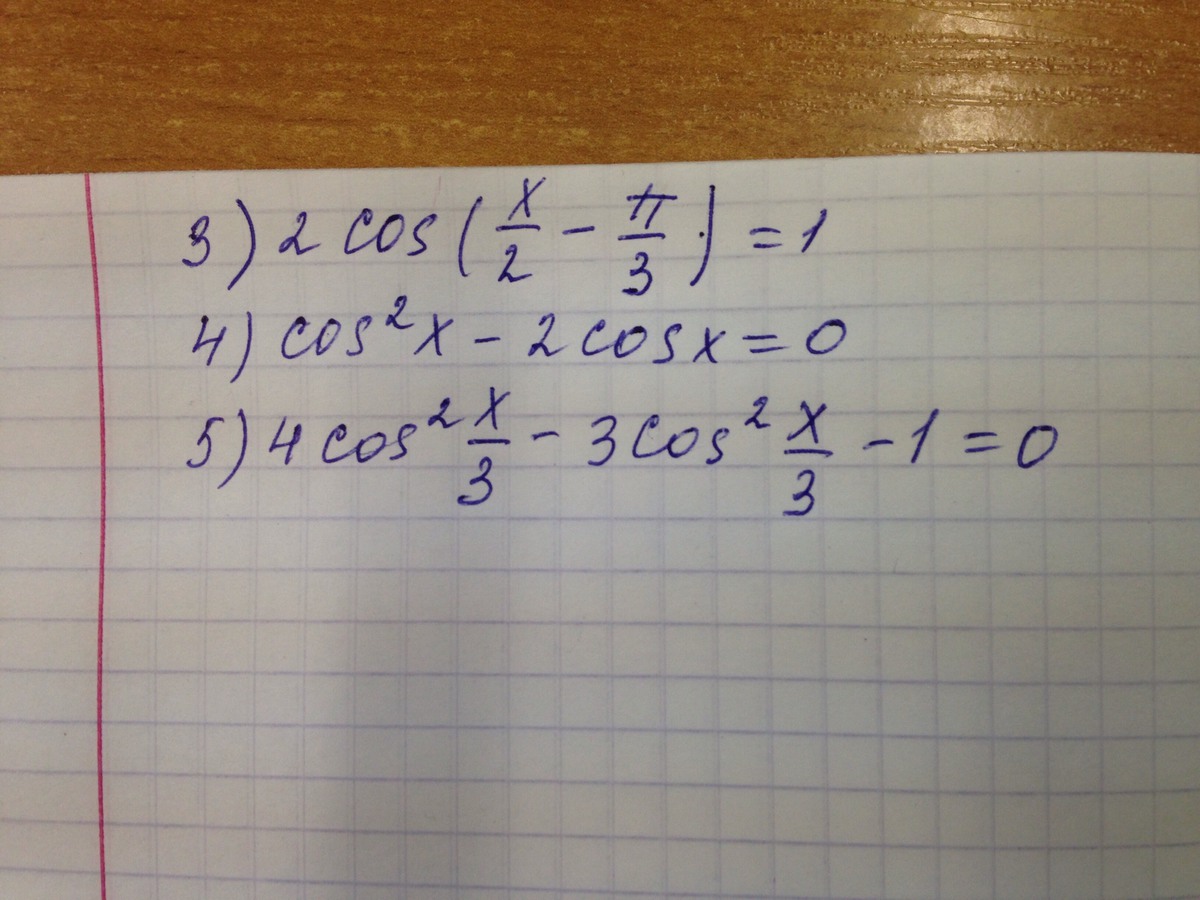 3) 2 cos(x/2 - π/3) = 1
4) cos²x - 2cosx = 0
5) 4cos² x/3 - 3cos² x/3 - 1 = 0